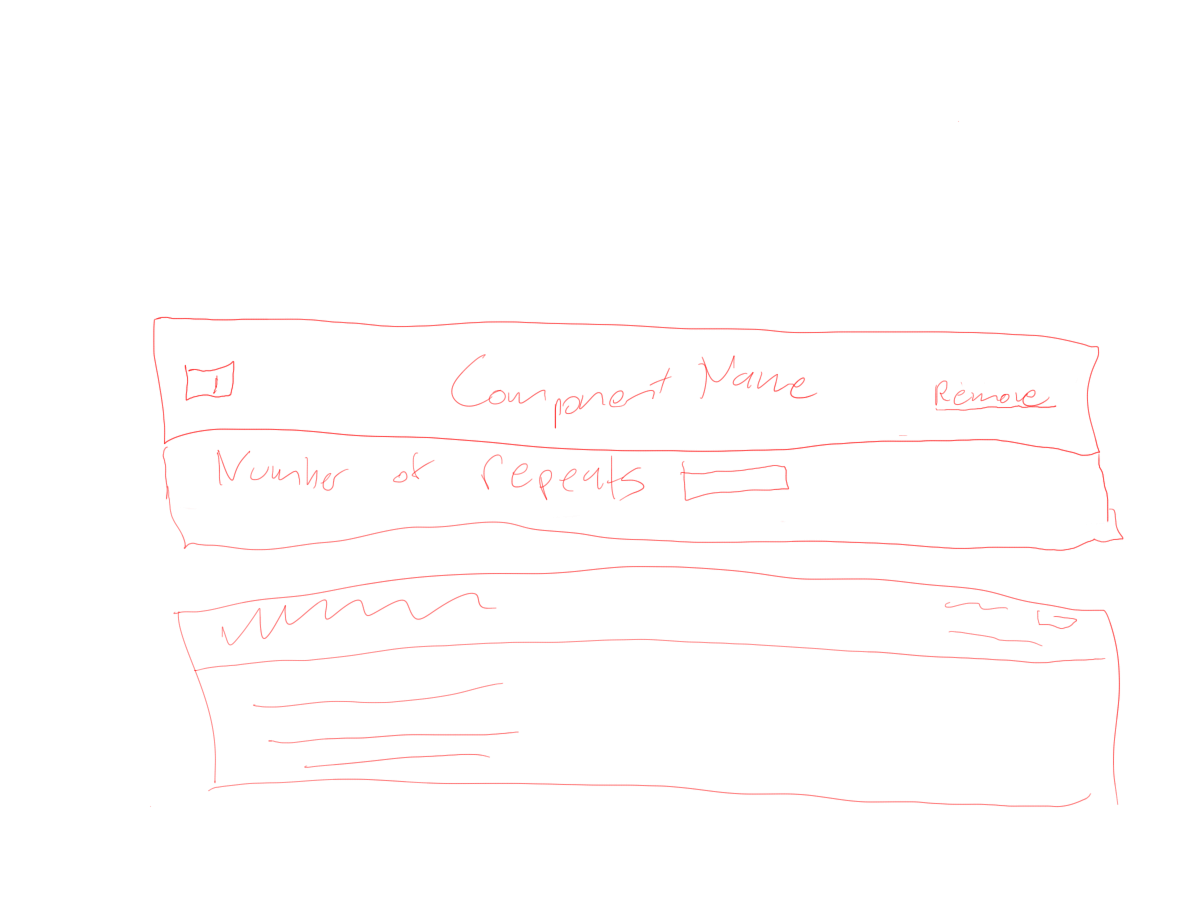 1
Component Name
Remove
Number of repeats